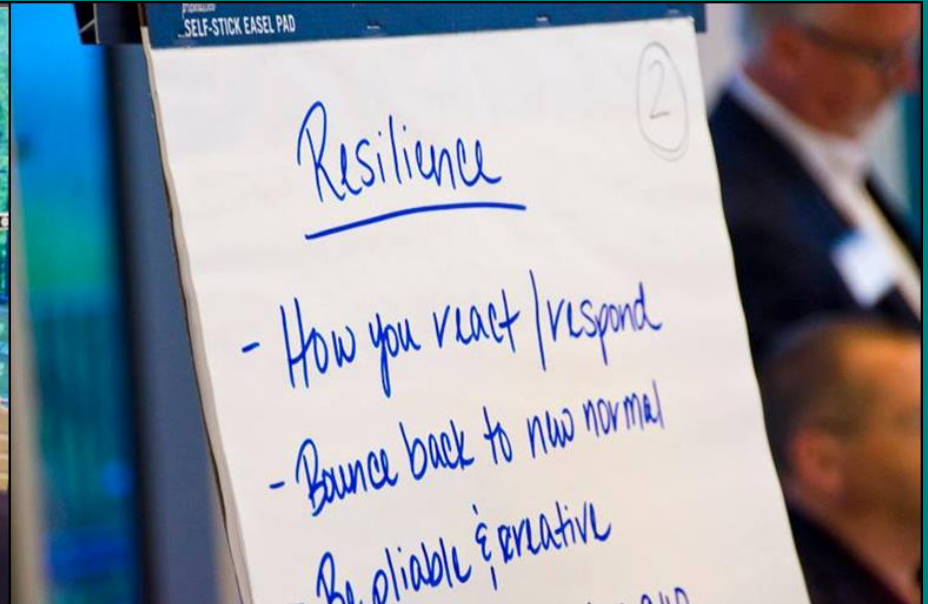 SELF-STICK EASEL PAD
2
Resilience
- How you react/respond
- Bounce back to new normal
- Be pliable & creative